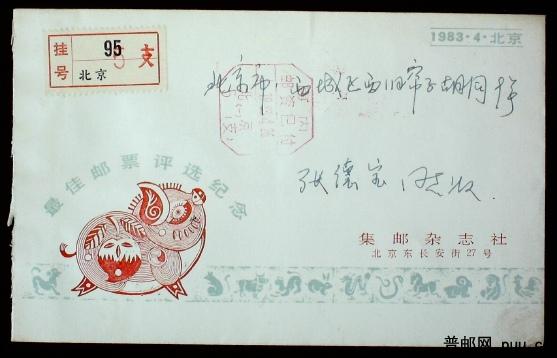 挂号
95 支
北京
1983·4·北京
北京市西城区西旧帘子胡同
国内
邮资已付
北京
(支)
最佳邮票评选纪念
张德宝同志收
集邮杂志社
北京东长安街27号
普邮网 puu.c